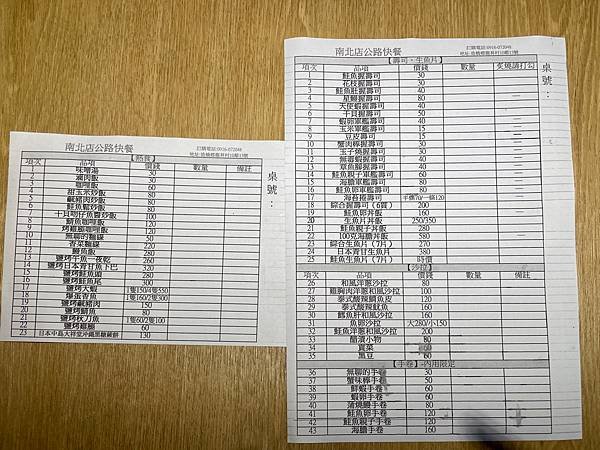 南北店公路快餐
訂購電話:0916-072048
【熱食】
項次 品項 價錢 數量 備註
桌號：
1 味噌湯 30
2 滷肉飯 30
3 咖哩飯 60
4 甜玉米炒飯 80
5 鹹豬肉炒飯 80
6 鮭魚鬆炒飯 80
7 十貝吻仔魚酸炒飯 100
8 鯖魚咖哩飯 120
9 烤雞腿咖哩飯 120
10 無聊的麵線 50
11 杏菜麵線 220
12 鰻魚飯 280
13 鹽烤午魚一夜乾 260
14 鹽烤日本青甘魚下巴 320
15 鹽烤鮭魚頭 280
16 鹽烤鮭魚尾 300
17 鹽烤大蝦 1隻150/4隻550
18 爆蛋香魚 1隻160/2隻300
19 鹽烤鹹豬肉 150
20 鹽烤鯖魚 80
21 鹽烤秋刀魚 1隻60/2隻100
22 鹽烤雞腿 60
23 日本中島大祥堂沖繩黑糖蕨餅 130
南北店公路快餐
訂購電話:0916-072048
【壽司、生魚片】
項次 品項 價錢 數量 炙燒請打勾
桌號：
1 鮭魚握壽司 30
2 花枝握壽司 30
3 鮭魚肚握壽司 40
4 星鰻握壽司 80
5 天使蝦握壽司 40
6 干貝握壽司 50
7 蝦卵軍艦壽司 30
8 玉米軍艦壽司 15
9 豆皮壽司 15
10 蟹肉棒握壽司 30
11 玉子燒握壽司 30
12 無聊蝦握壽司 40
13 章魚腳握壽司 40
14 鮭魚親子軍艦壽司 60
15 海膽軍艦壽司 80
16 鮭魚卵軍艦壽司 80
17 海苔捲壽司
18 綜合握壽司（6貫） 200
19 鮭魚卵丼飯 160
20 生魚片丼飯 250/350
21 鮭魚親子丼飯 280
22 100克海膽丼飯 580
23 綜合生魚片（7片） 270
24 日本青甘生魚片 380
25 生魚生魚片（7片） 時價
【沙拉】
項次 品項 價錢 數量 備註
26 和風洋蔥沙拉 80
27 雞胸肉洋蔥和風沙拉 100
28 泰式酸辣鯛魚皮 120
29 泰式酸辣魷魚 160
30 鱈魚肝和風沙拉 160
31 魚卵沙拉 大280/小150
32 鮭魚洋蔥和風沙拉 200
33 醋漬小物 80
34 貢菜
35 黑豆 60
【手卷】-內用限定
36 無聊的手卷 30
37 蟹味棒手卷 50
38 鮮蝦手卷 60
39 蝦卵手卷 60
40 蒲燒鰻手卷 80
41 鮭魚卵手卷 120
42 鮭魚親子手卷 120
43 海膽手卷 160